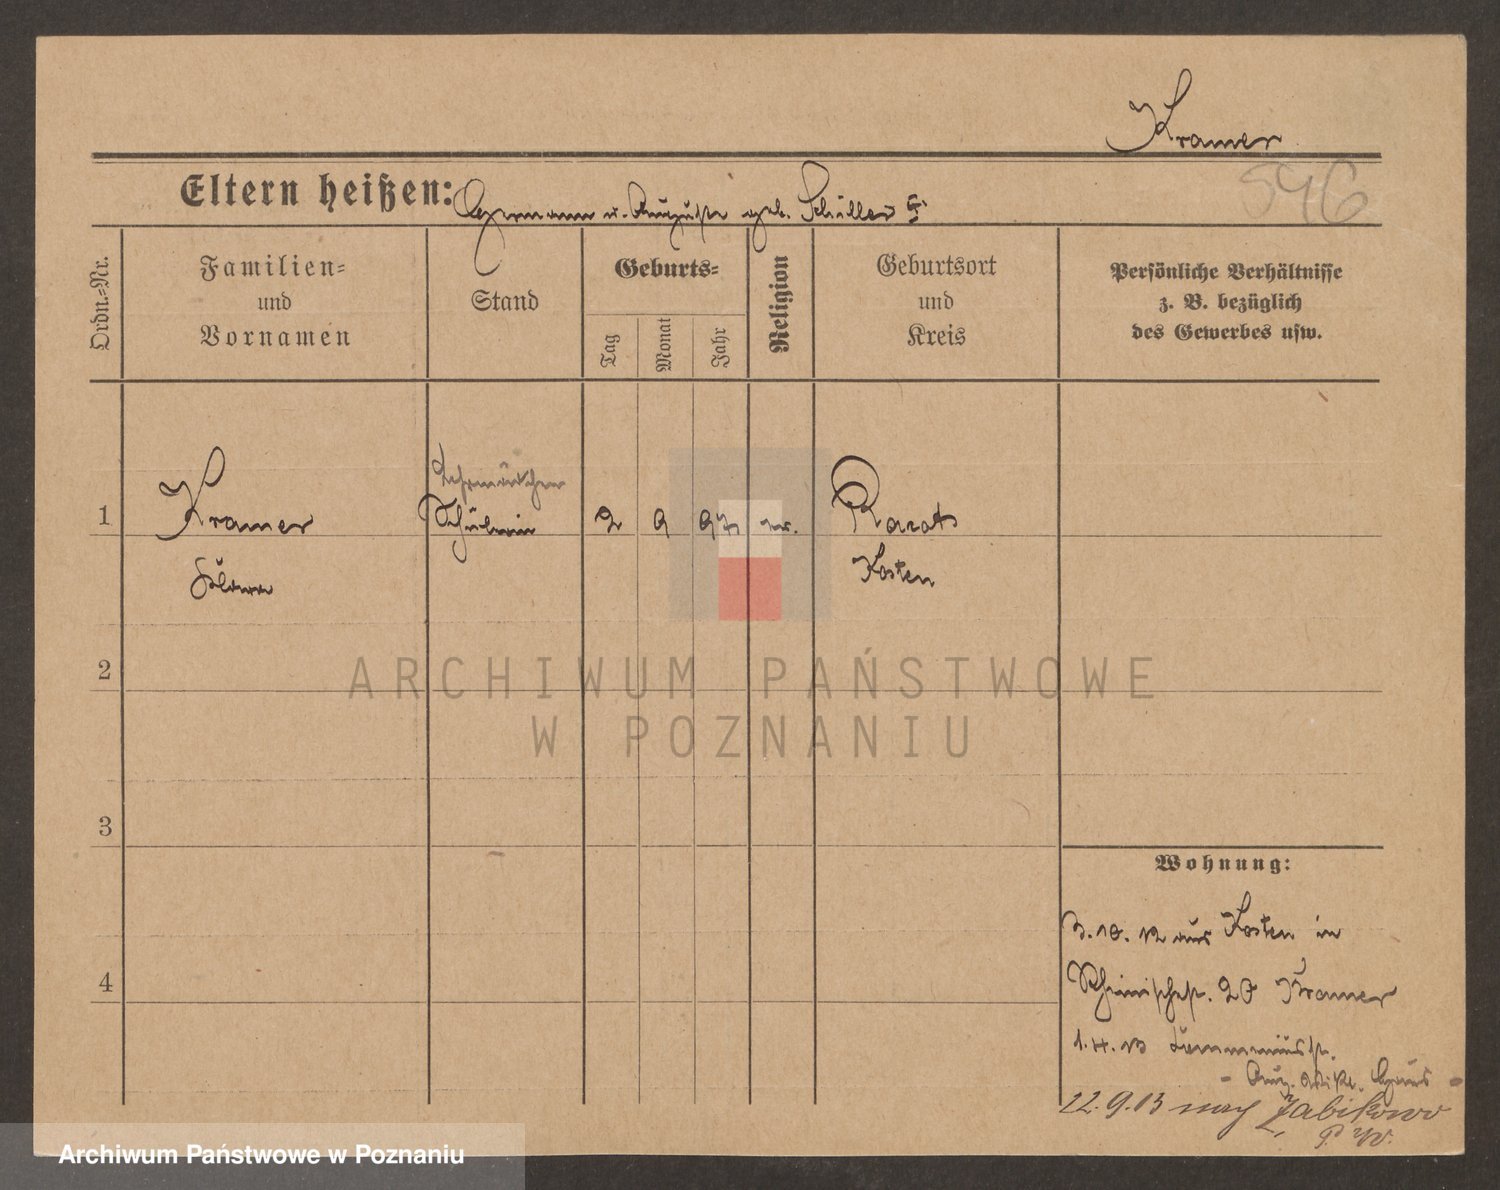 Kramer
Eltern heißen: Hermann u. Auguste geb. Schiller
546
Ordn.-Nr.
Familien-
und
Vornamen
Stand
Geburts-
Tag
Monat
Jahr
Religion
Geburtsort
und
Kreis
Persönliche Verhältnisse
z. B. bezüglich
des Gewerbes usw.
Lehrmädchen
1 Kramer Schülerin 2 9 97 ev. Racot
Kosten
2
ARCHIWUM PAŃSTWOWE
W POZNANIU
3
4
Wohnung:
3.10.12 aus Kosten in
20 Kramer
1.4.13
22.9.13 nach Zabikowo
P. W.
Archiwum Państwowe w Poznaniu